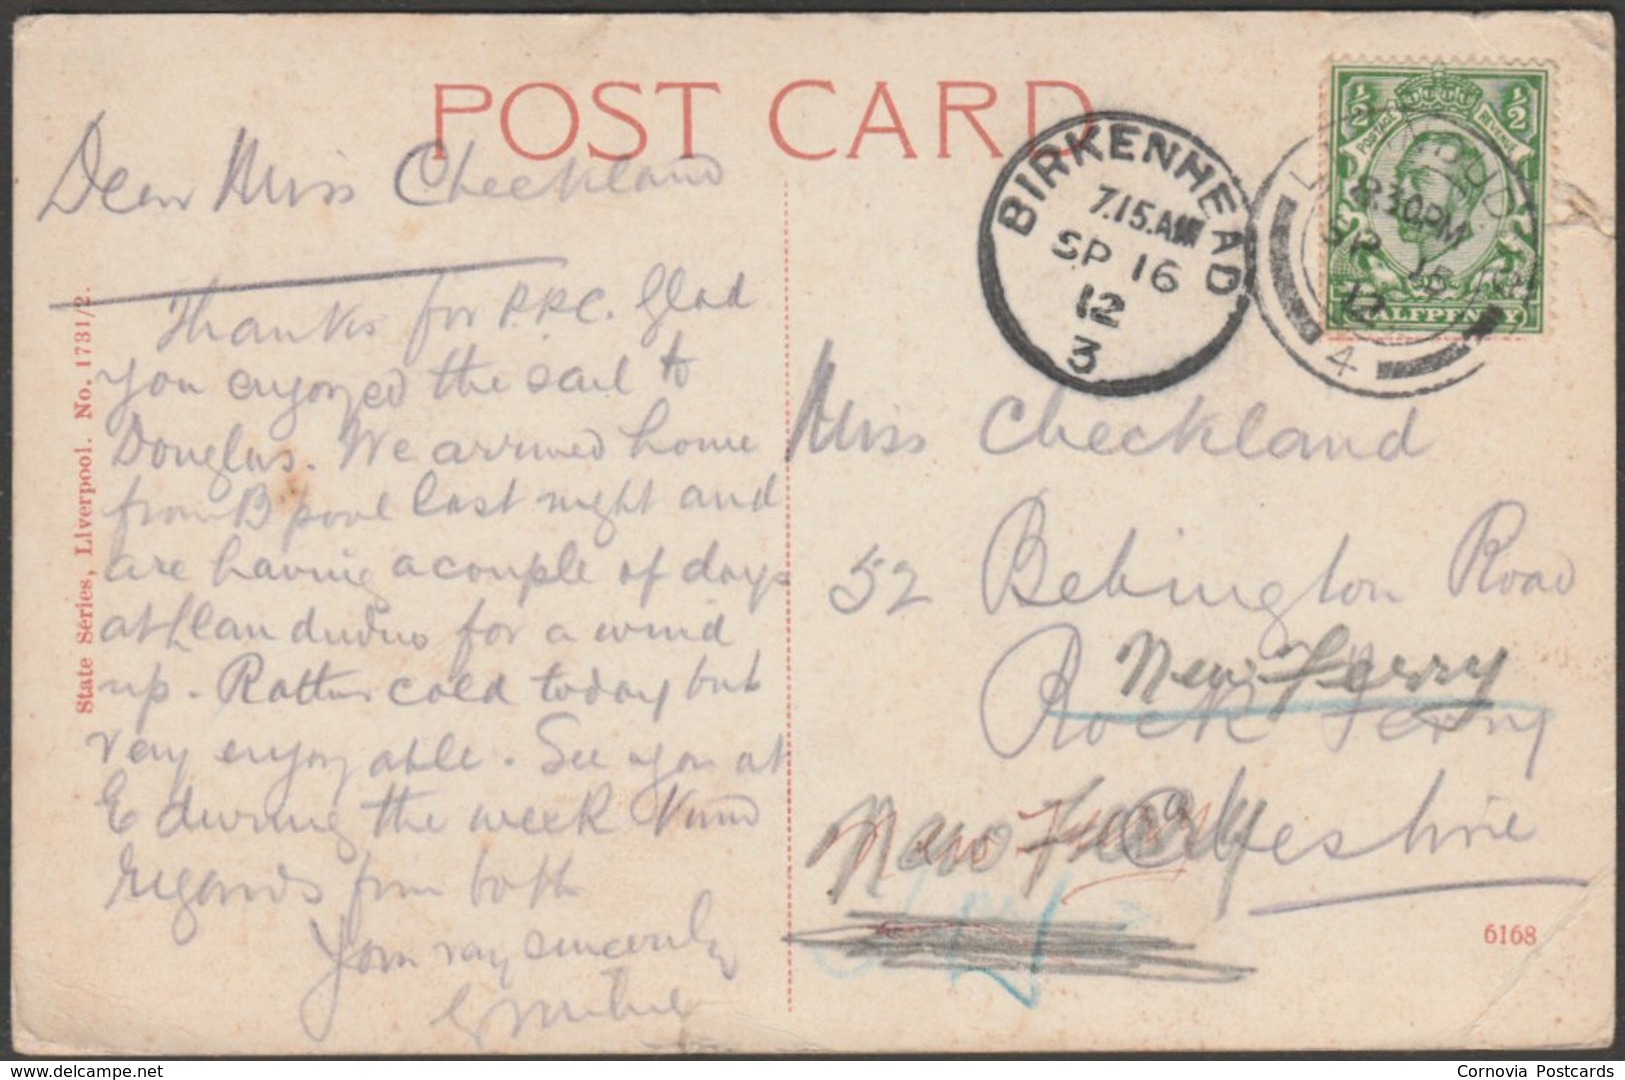 POST CARD
Dear Miss Checkland
Thanks for P.P.C. Glad
you enjoyed the sail to
Douglas. We arrived home
from B'pool last night and
are having a couple of days
at Llandudno for a wind
up. Rather cold today but
very enjoyable. See you at
E during the week Kind
regards from both
Yours very sincerely
State Series, Liverpool. No. 1731/2.
BIRKENHEAD
7.15.AM
SP 16
12
3
8.30PM
SP 15
12
4
½ ½
POSTAGE REVENUE
HALFPENNY
Miss Checkland
52 Bebington Road
New Ferry
Rock Ferry
New Ferry
Cheshire
6168
delcampe.net
Cornovia Postcards